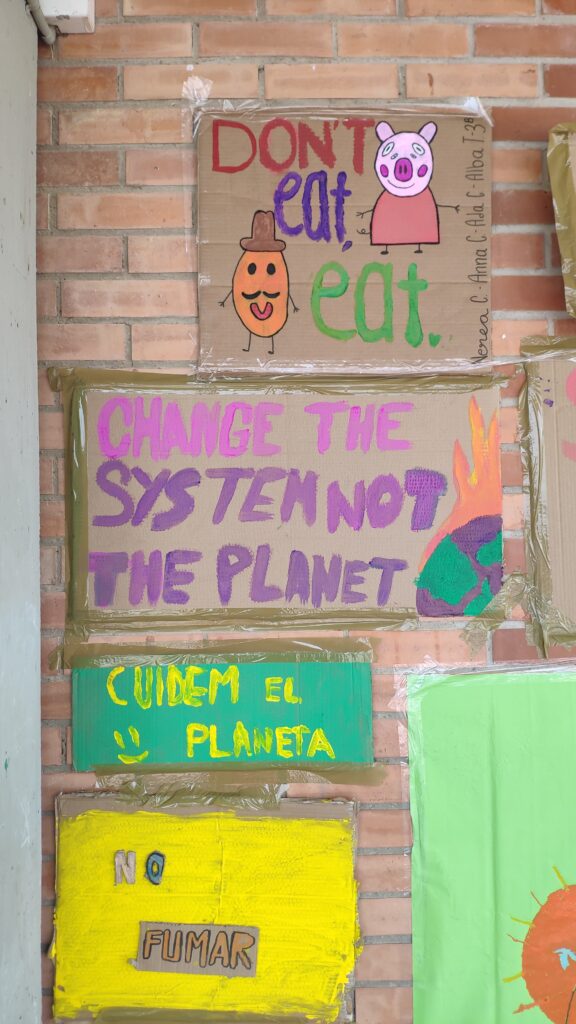 DON'T
eat,
eat.
Nerea C.-Anna C-Ada C-Alba T-3B
CHANGE THE
SYSTEM NOT
THE PLANET
CUIDEM EL
PLANETA
NO
FUMAR